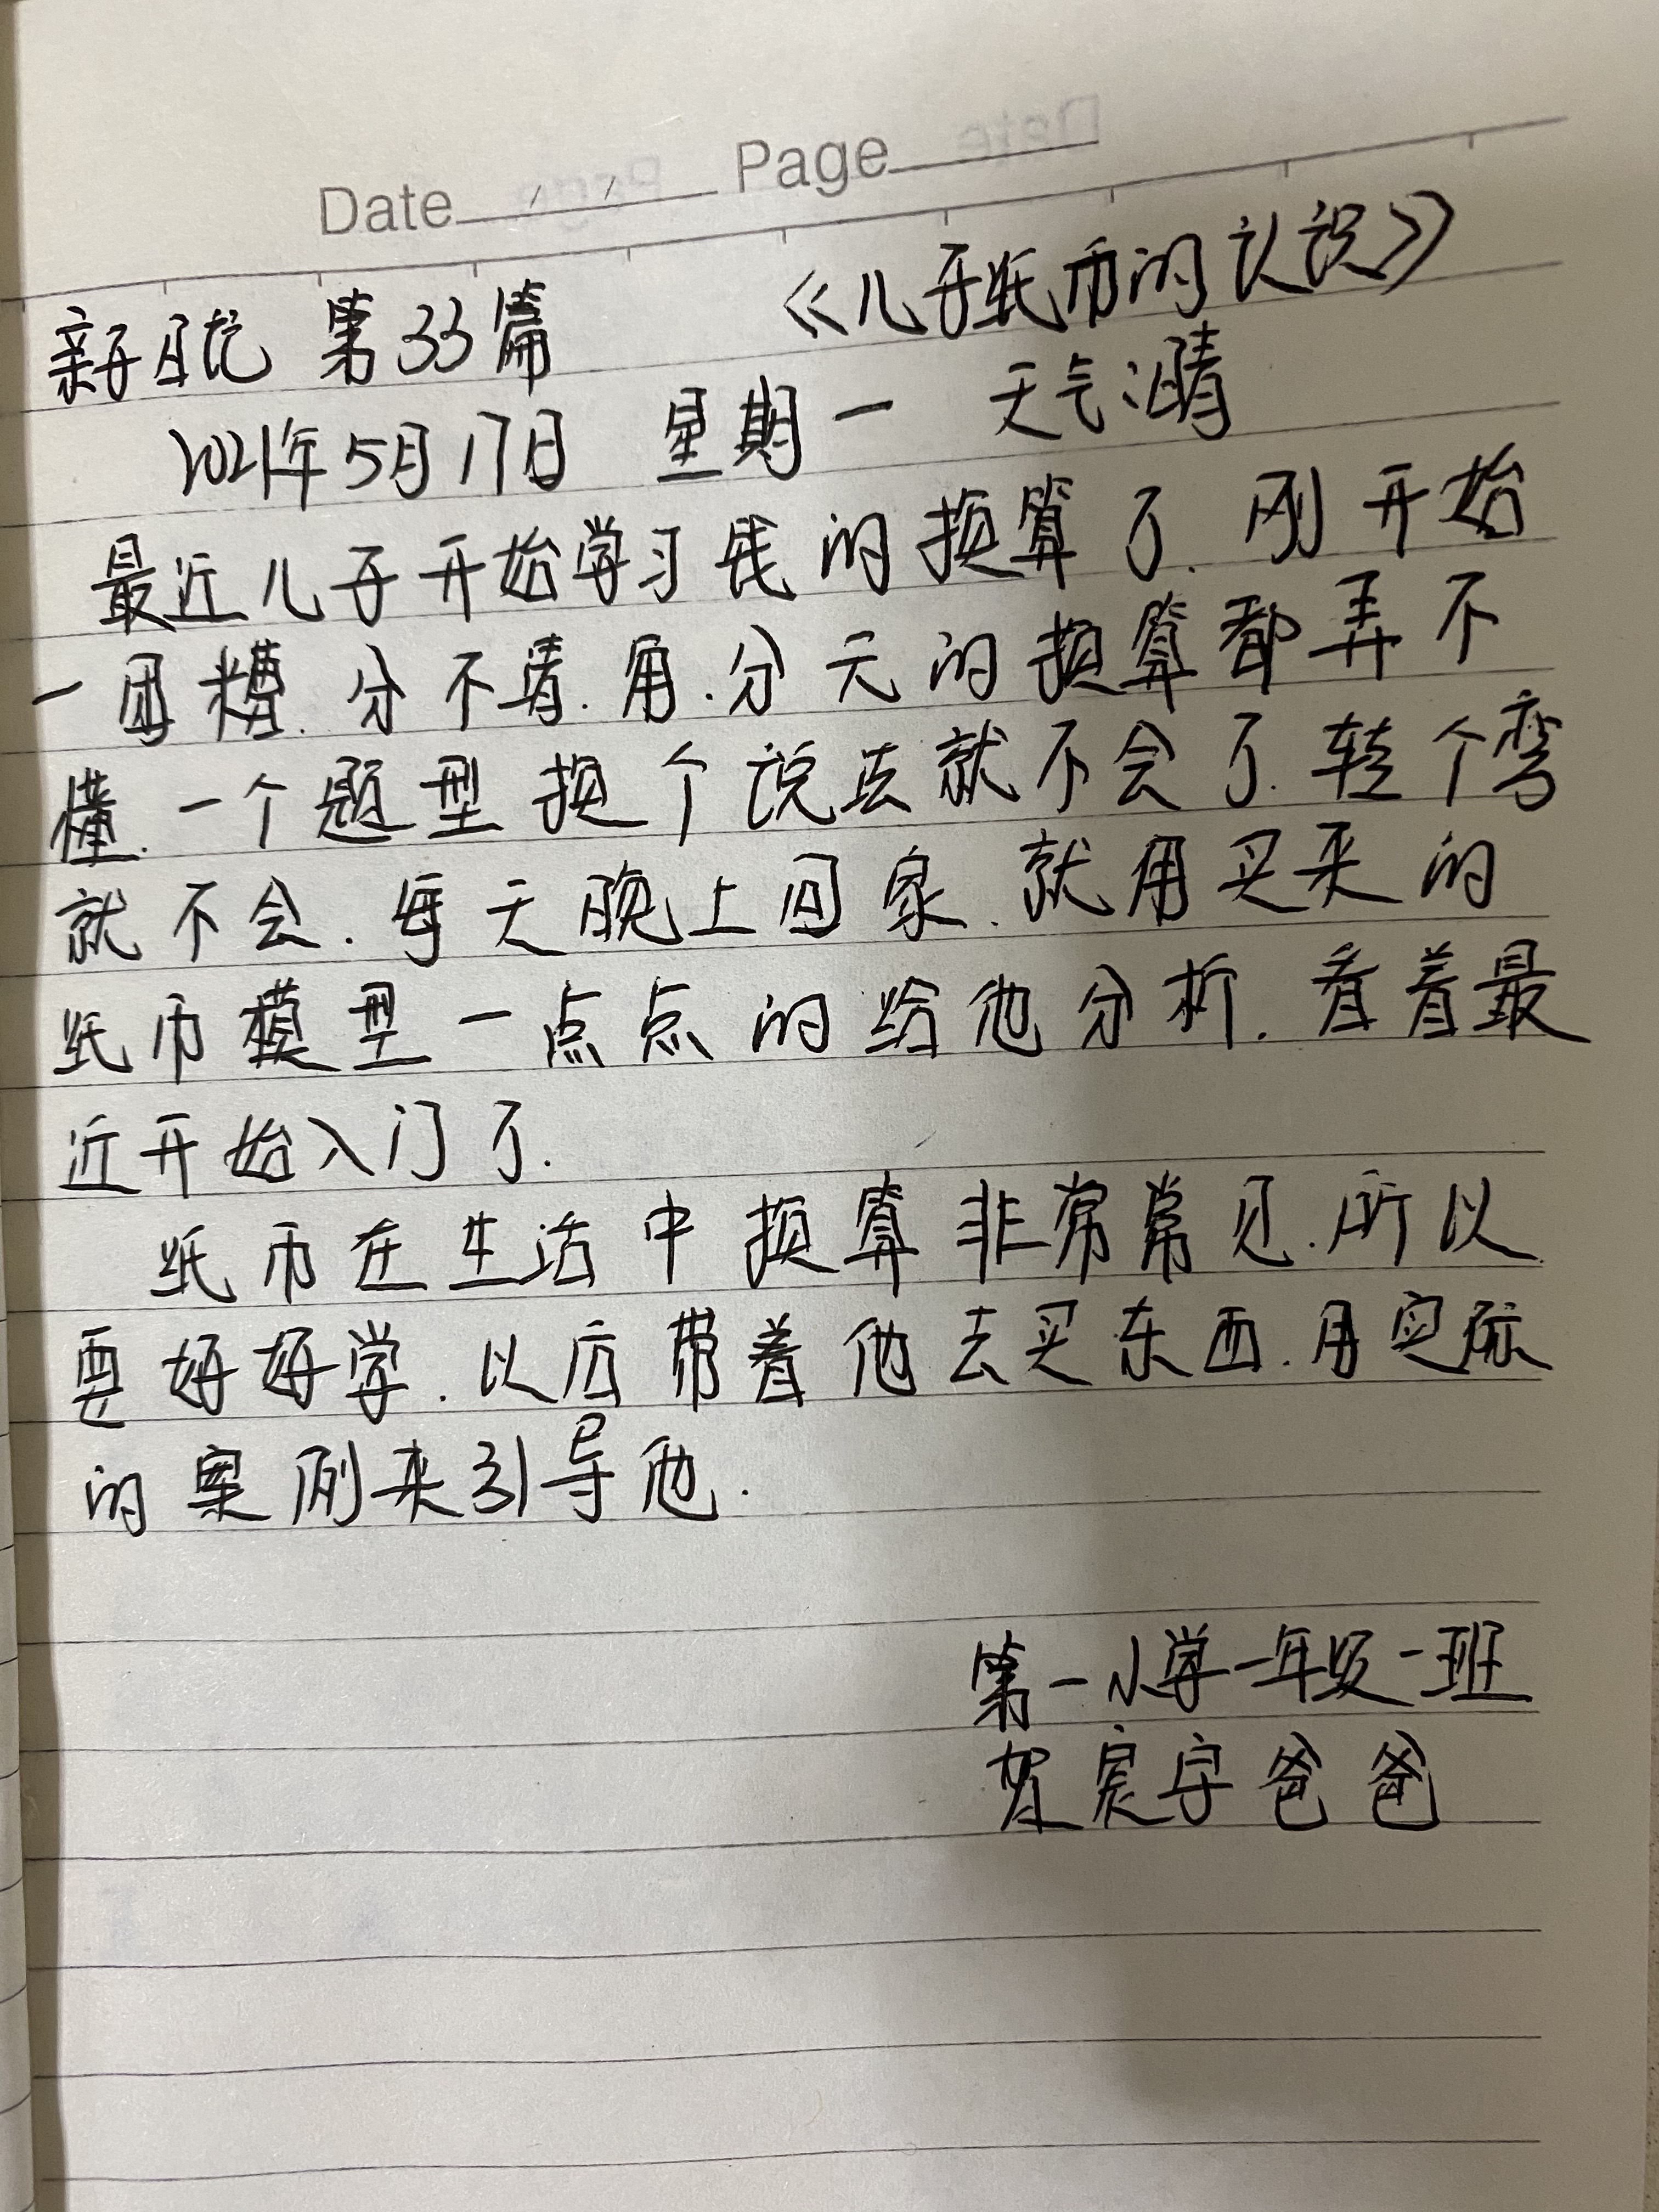 Date / / Page
亲子日记 第33篇 《儿子纸币的认识》
2021年5月17日 星期一 天气:晴
最近儿子开始学习钱的换算了.刚开始
一团糟.分不清.角.分元的换算都弄不
懂.一个题型换个说法就不会了.转个弯
就不会.每天晚上回家.就用买来的
纸币模型一点点的给他分析.看着最
近开始入门了.
纸币在生活中换算非常常见.所以
要好好学.以后带着他去买东西.用实际
的案例来引导他.
第一小学一年级一班
贺宸宇爸爸